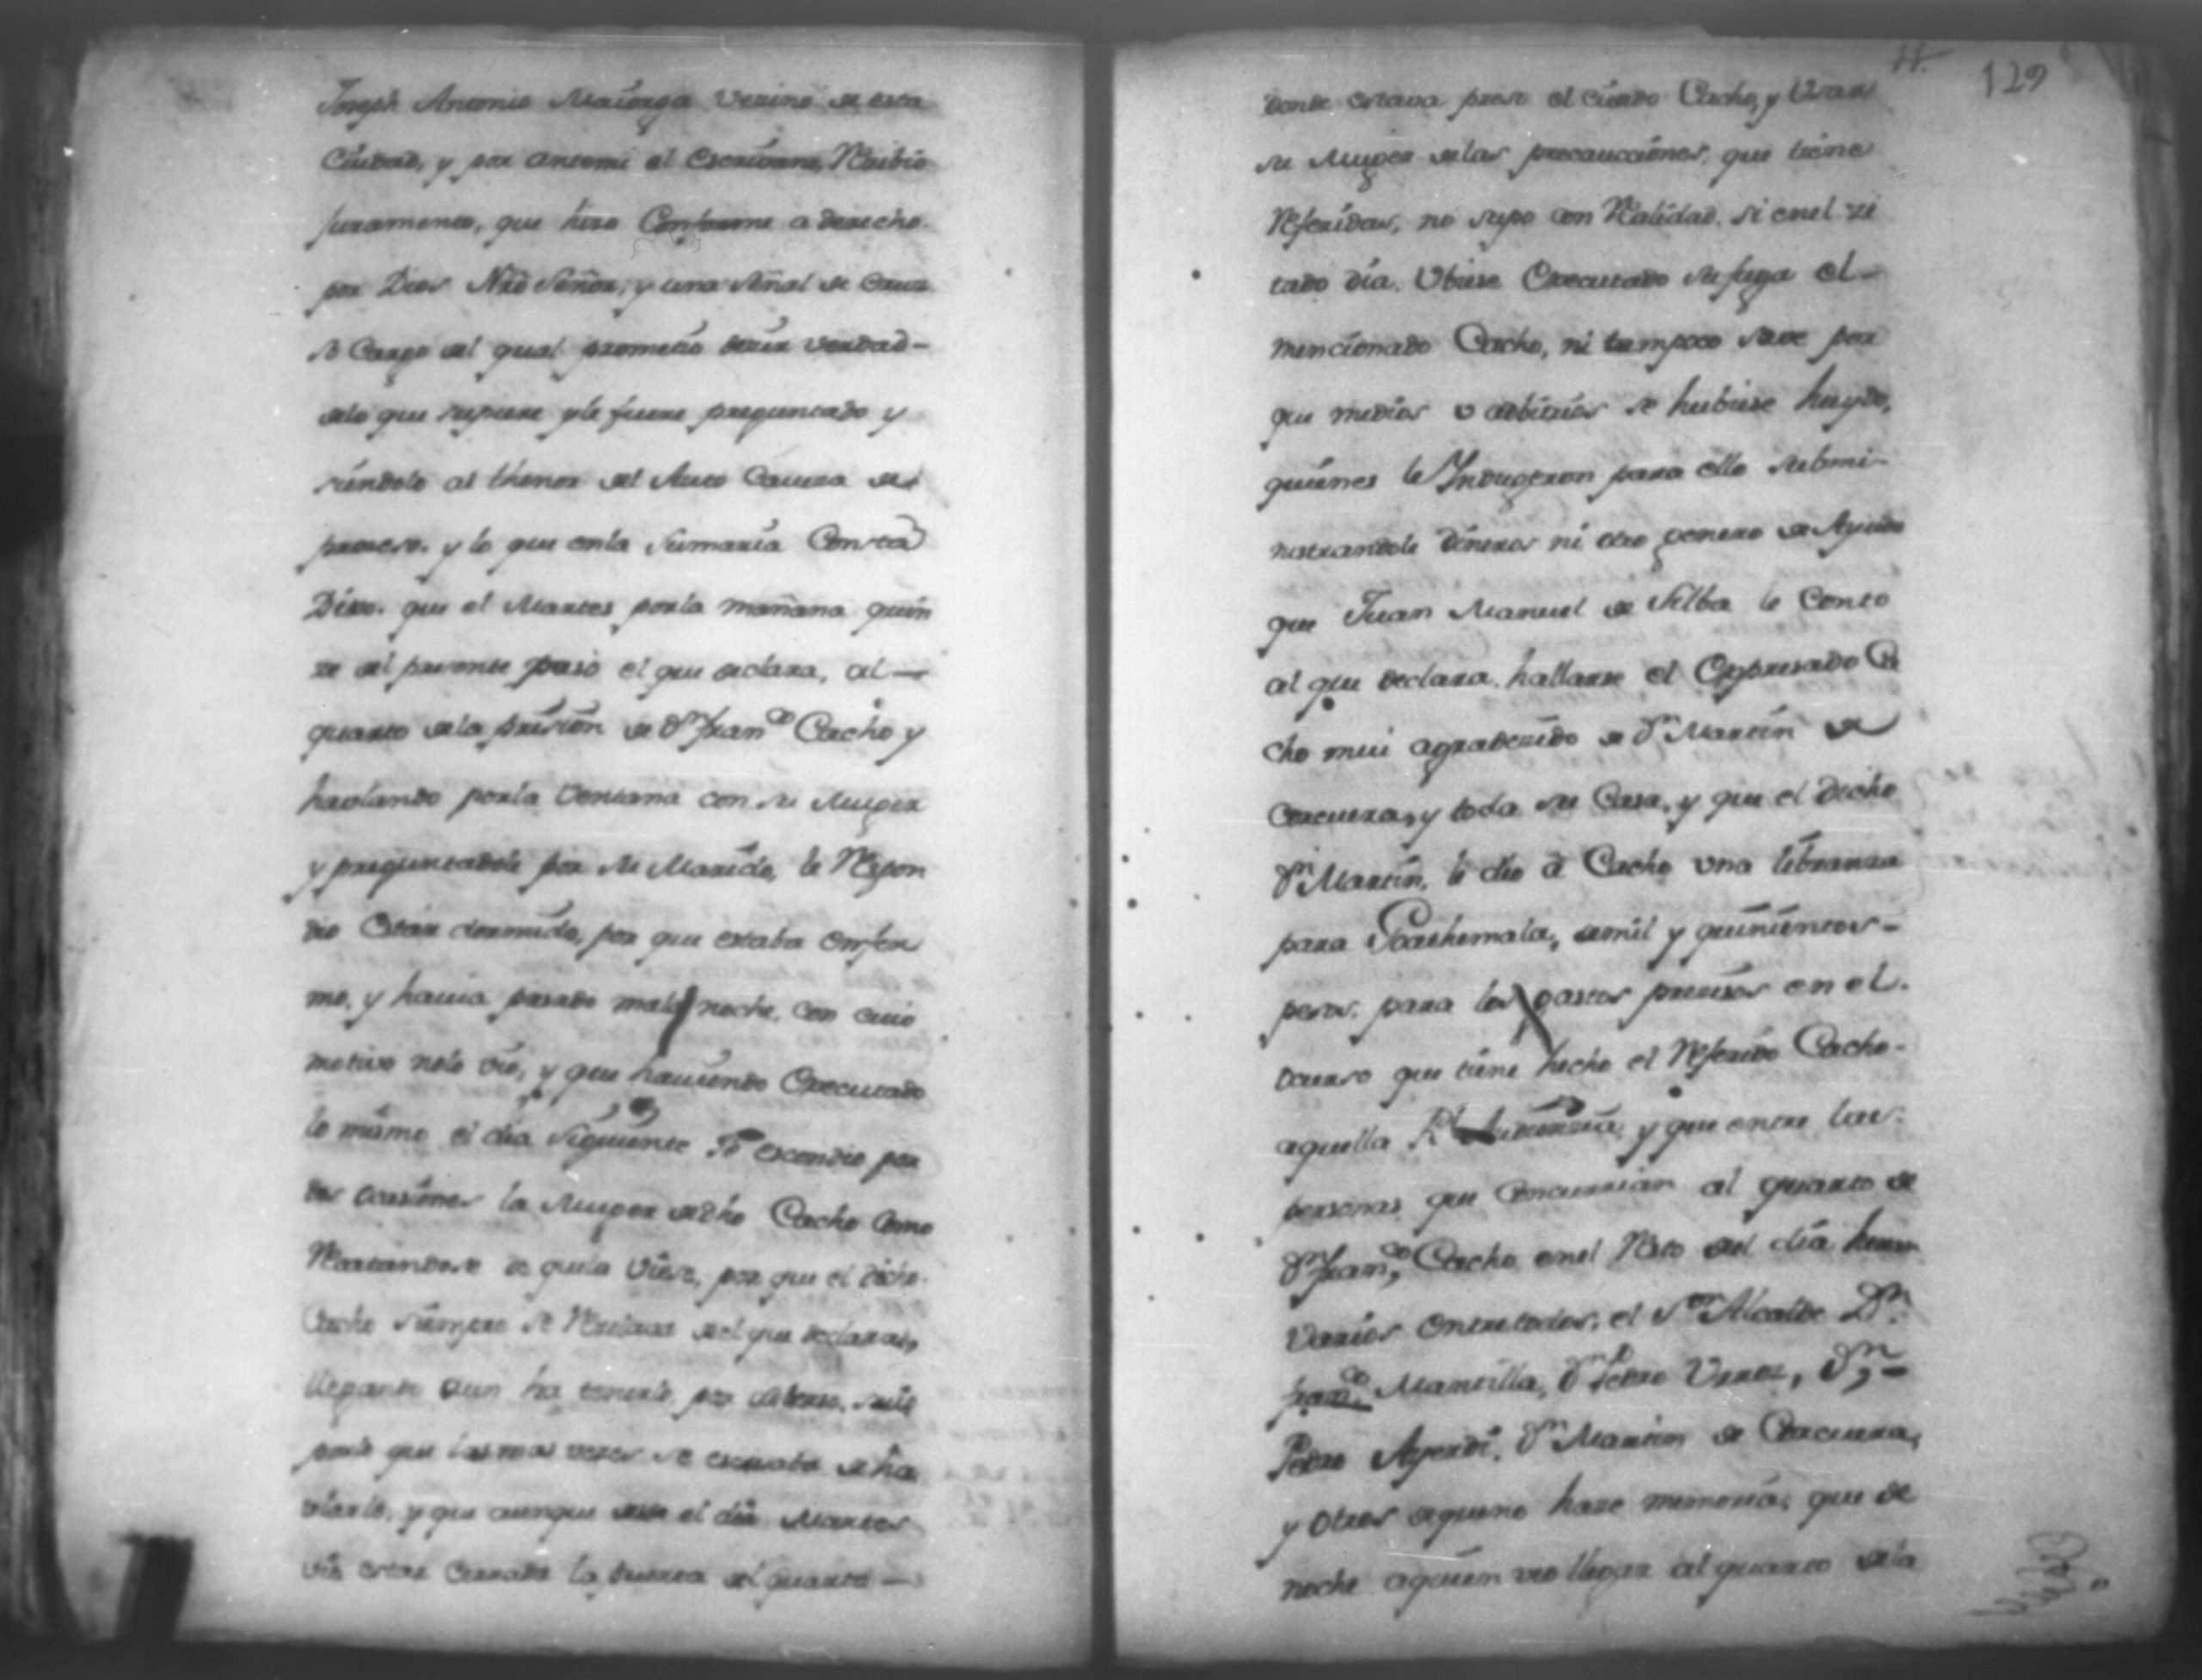 Joseph Antonio Mayorga Vezino de esta
Ciudad, y por antemi el Escrivano, Recibio
juramento, que hizo Conforme a derecho
por Dios Nro Señor, y una señal de Cruz
so Cargo del qual prometio dezir verdad-
delo que supiere yle fuere preguntado y
siendolo al thenor del Auto Caveza de
proceso. y lo que enla Sumaria Consta
Dixo. que el Martes porla mañana quin
ze del presente paso el que declara, al-
quarto dela prision de Dn Franco Cacho y
havlando porla Ventana con su Muger
y preguntadole por su Marido, le Respon
dio Estar dormido, por que estaba enfer
mo, y havia pasado mala noche, con cuio
motivo nolo vio, y que haviendo Executado
lo mismo el dia siguiente se escondio por
dos ocasiones la Muger dedho Cacho como
de quela viese, por que el dicho
Cacho siempre se del que declara,
llegando aun ha tenerle por
que las mas vezes se escusaba de ha
blarle, y que aunque el dia Martes
vio estar Cerrada la puerta del quarto-
11.
129
donde estava preso el citado Cacho, y Usar
su Muger delas precauciones, que tiene
Referidas, no supo con Realidad. si enel ci
tado dia. Ubiese Executado su fuga el-
mencionado Cacho, ni tampoco save por
que medios o arbitrios se hubiese huydo,
quienes le Indugeron para ello submi-
nistrandole dineros ni otro genero de Ayuda
que Juan Manuel de Silba le Conto
al que declara. hallarse el Expresado Ca
cho mui agradezido de Dn Martin de
Corcuera, y toda su Casa, y que el dicho
Dn Martin, le dio â Cacho una libranza
para Goathemala, demil y quinientos-
pesos, para los gastos precisos en el.
ocurso que tiene hecho el Referido Cacho-
aquella Rl Audiencia y que entre las
personas que concurrian al quarto de
Dn Franco Cacho enel Resto del dia heran
Varios Entretodos, el Sor Alcalde Dn.
Franco Mantilla, Dn Pedro Dn-
Pedro Ayerdi, Dn Martin de Corcuera,
y Otros dequeno haze memoria; que de
noche aquien vio llegar al quarto dela